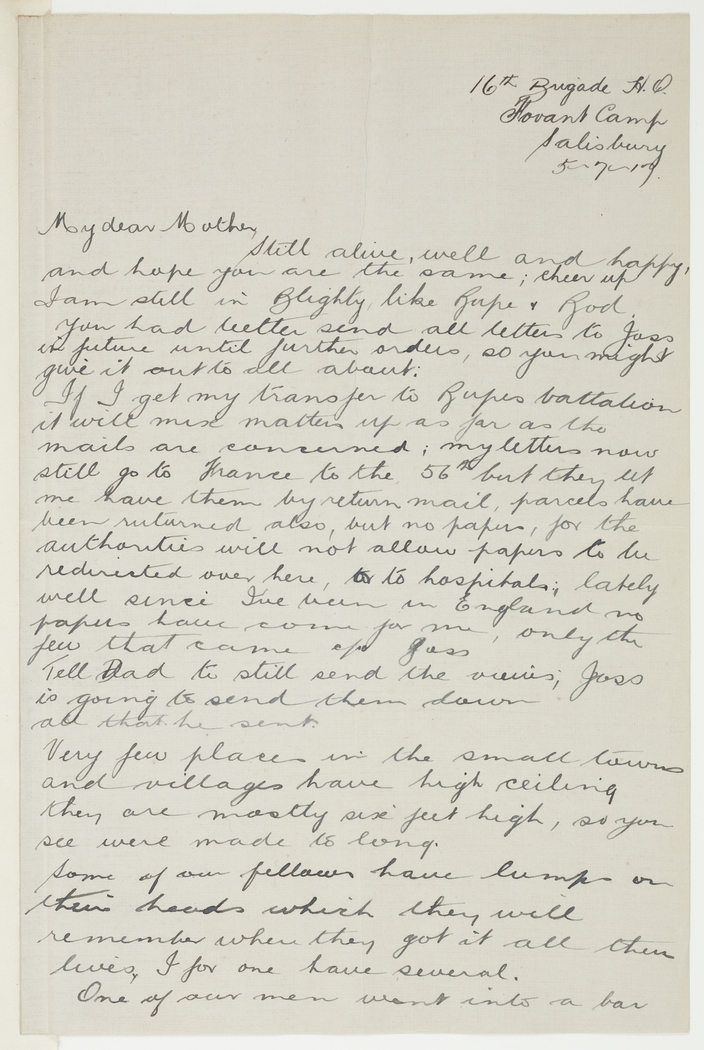 16th Brigade H.Q.
Fovant Camp
Salisbury
5-7-17.
My dear Mother,
Still alive, well and happy,
and hope you are the same; cheer up
I am still in Blighty, like Rupe & Rod.
You had better send all letters to Joss
in future until further orders, so you might
give it out to all about:
If I get my transfer to Rupes battalion
it will mix matters up as far as the
mails are concerned; my letters now
still go to France to the 56th but they let
me have them by return mail, parcels have
been ruturned also, but no papers, for the
authorities will not allow papers to be
redirected over here, or to hospitals; lately
well since I've been in England no
papers have come for me, only the
few that came c/o Joss
Tell Dad to still send the views; Joss
is going to send them down
all that he sent.
Very few places in the small towns
and villages have high ceiling
they are mostly six feet high, so you
see were made to long.
Some of our fellows have lumps on
their heads which they will
remember where they got it all their
lives, I for one have several.
One of our men went into a bar